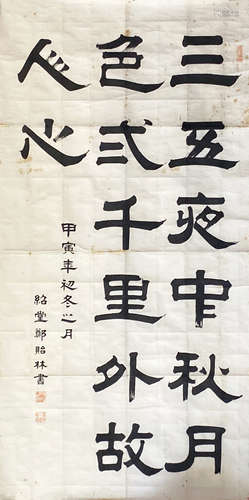 三五夜中秋月
色弍千里外故
人心
甲寅年初冬之月
紹堂鄭貽林書